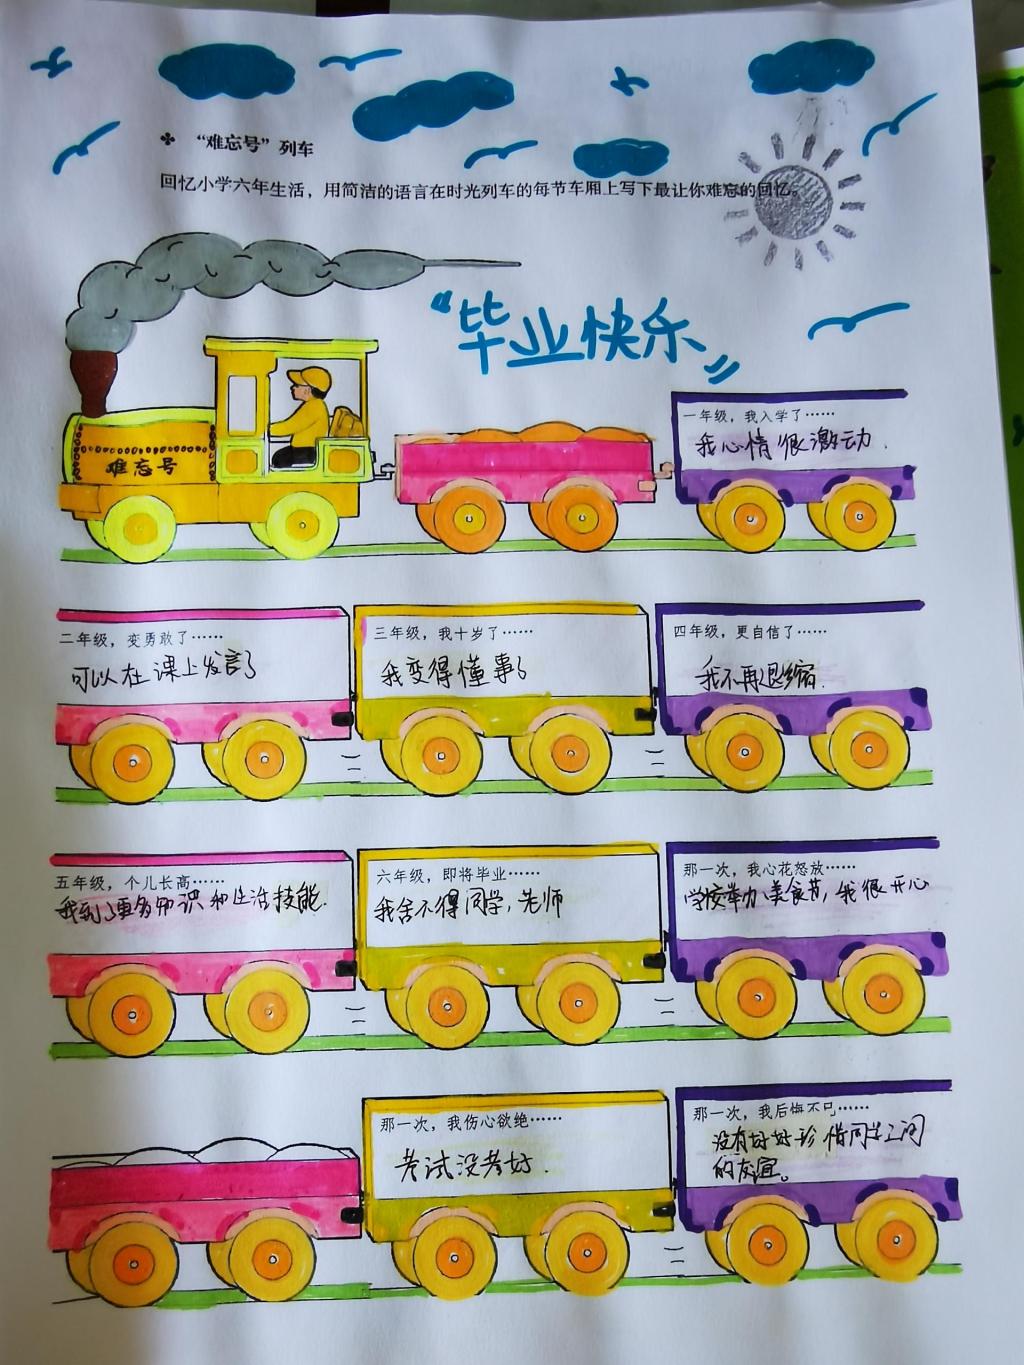 “难忘号”列车
回忆小学六年生活，用简洁的语言在时光列车的每节车厢上写下最让你难忘的回忆。
“毕业快乐”
难忘号
一年级，我入学了……
我心情很激动.
二年级，变勇敢了……
可以在课上发言了
三年级，我十岁了……
我变得懂事了
四年级，更自信了……
我不再退缩.
五年级，个儿长高……
我到了更多知识和生活技能.
六年级，即将毕业……
我舍不得同学,老师
那一次，我心花怒放……
学校举办美食节,我很开心
那一次，我伤心欲绝……
考试没考好.
那一次，我后悔不已……
没有好好珍惜同学之间
的友谊。